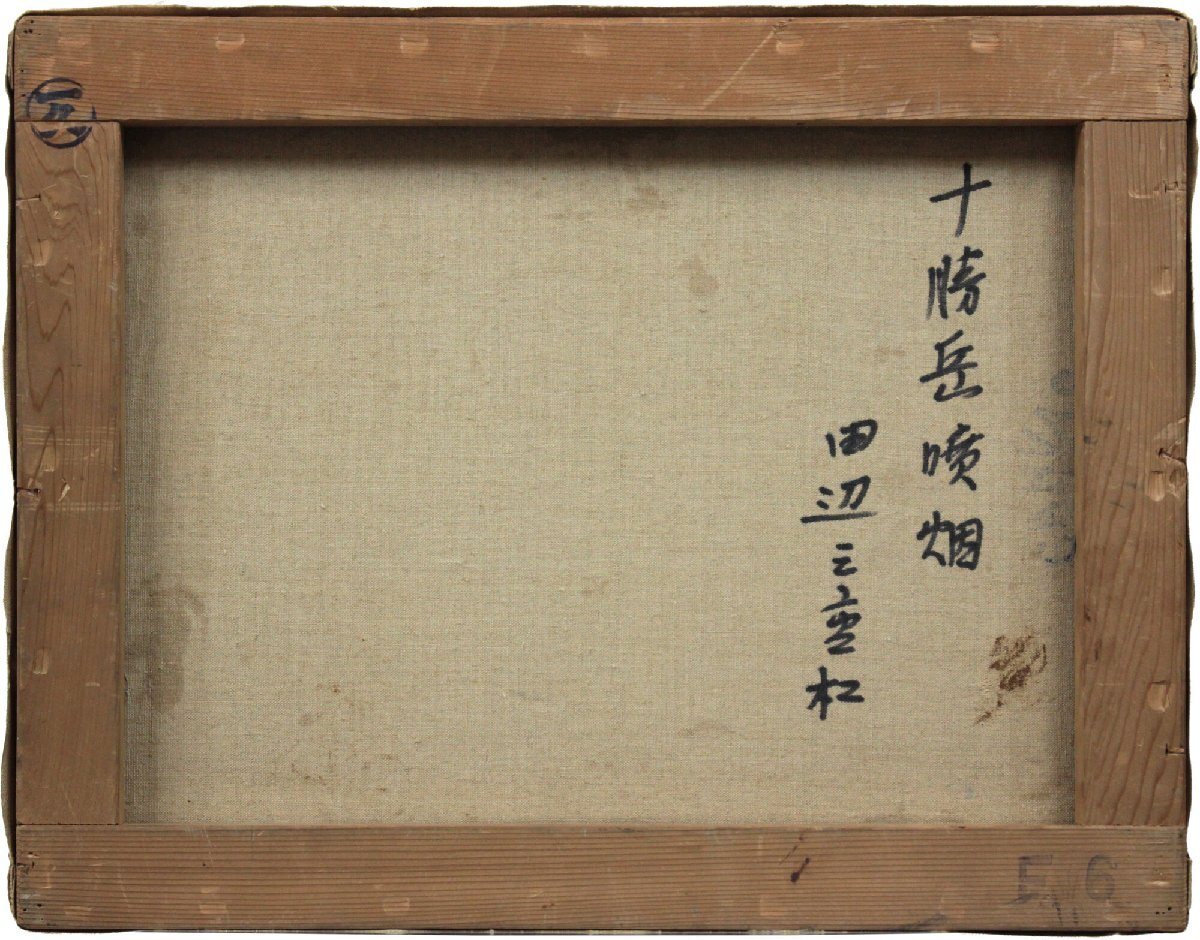 十勝岳噴烟
田辺三重松
F6